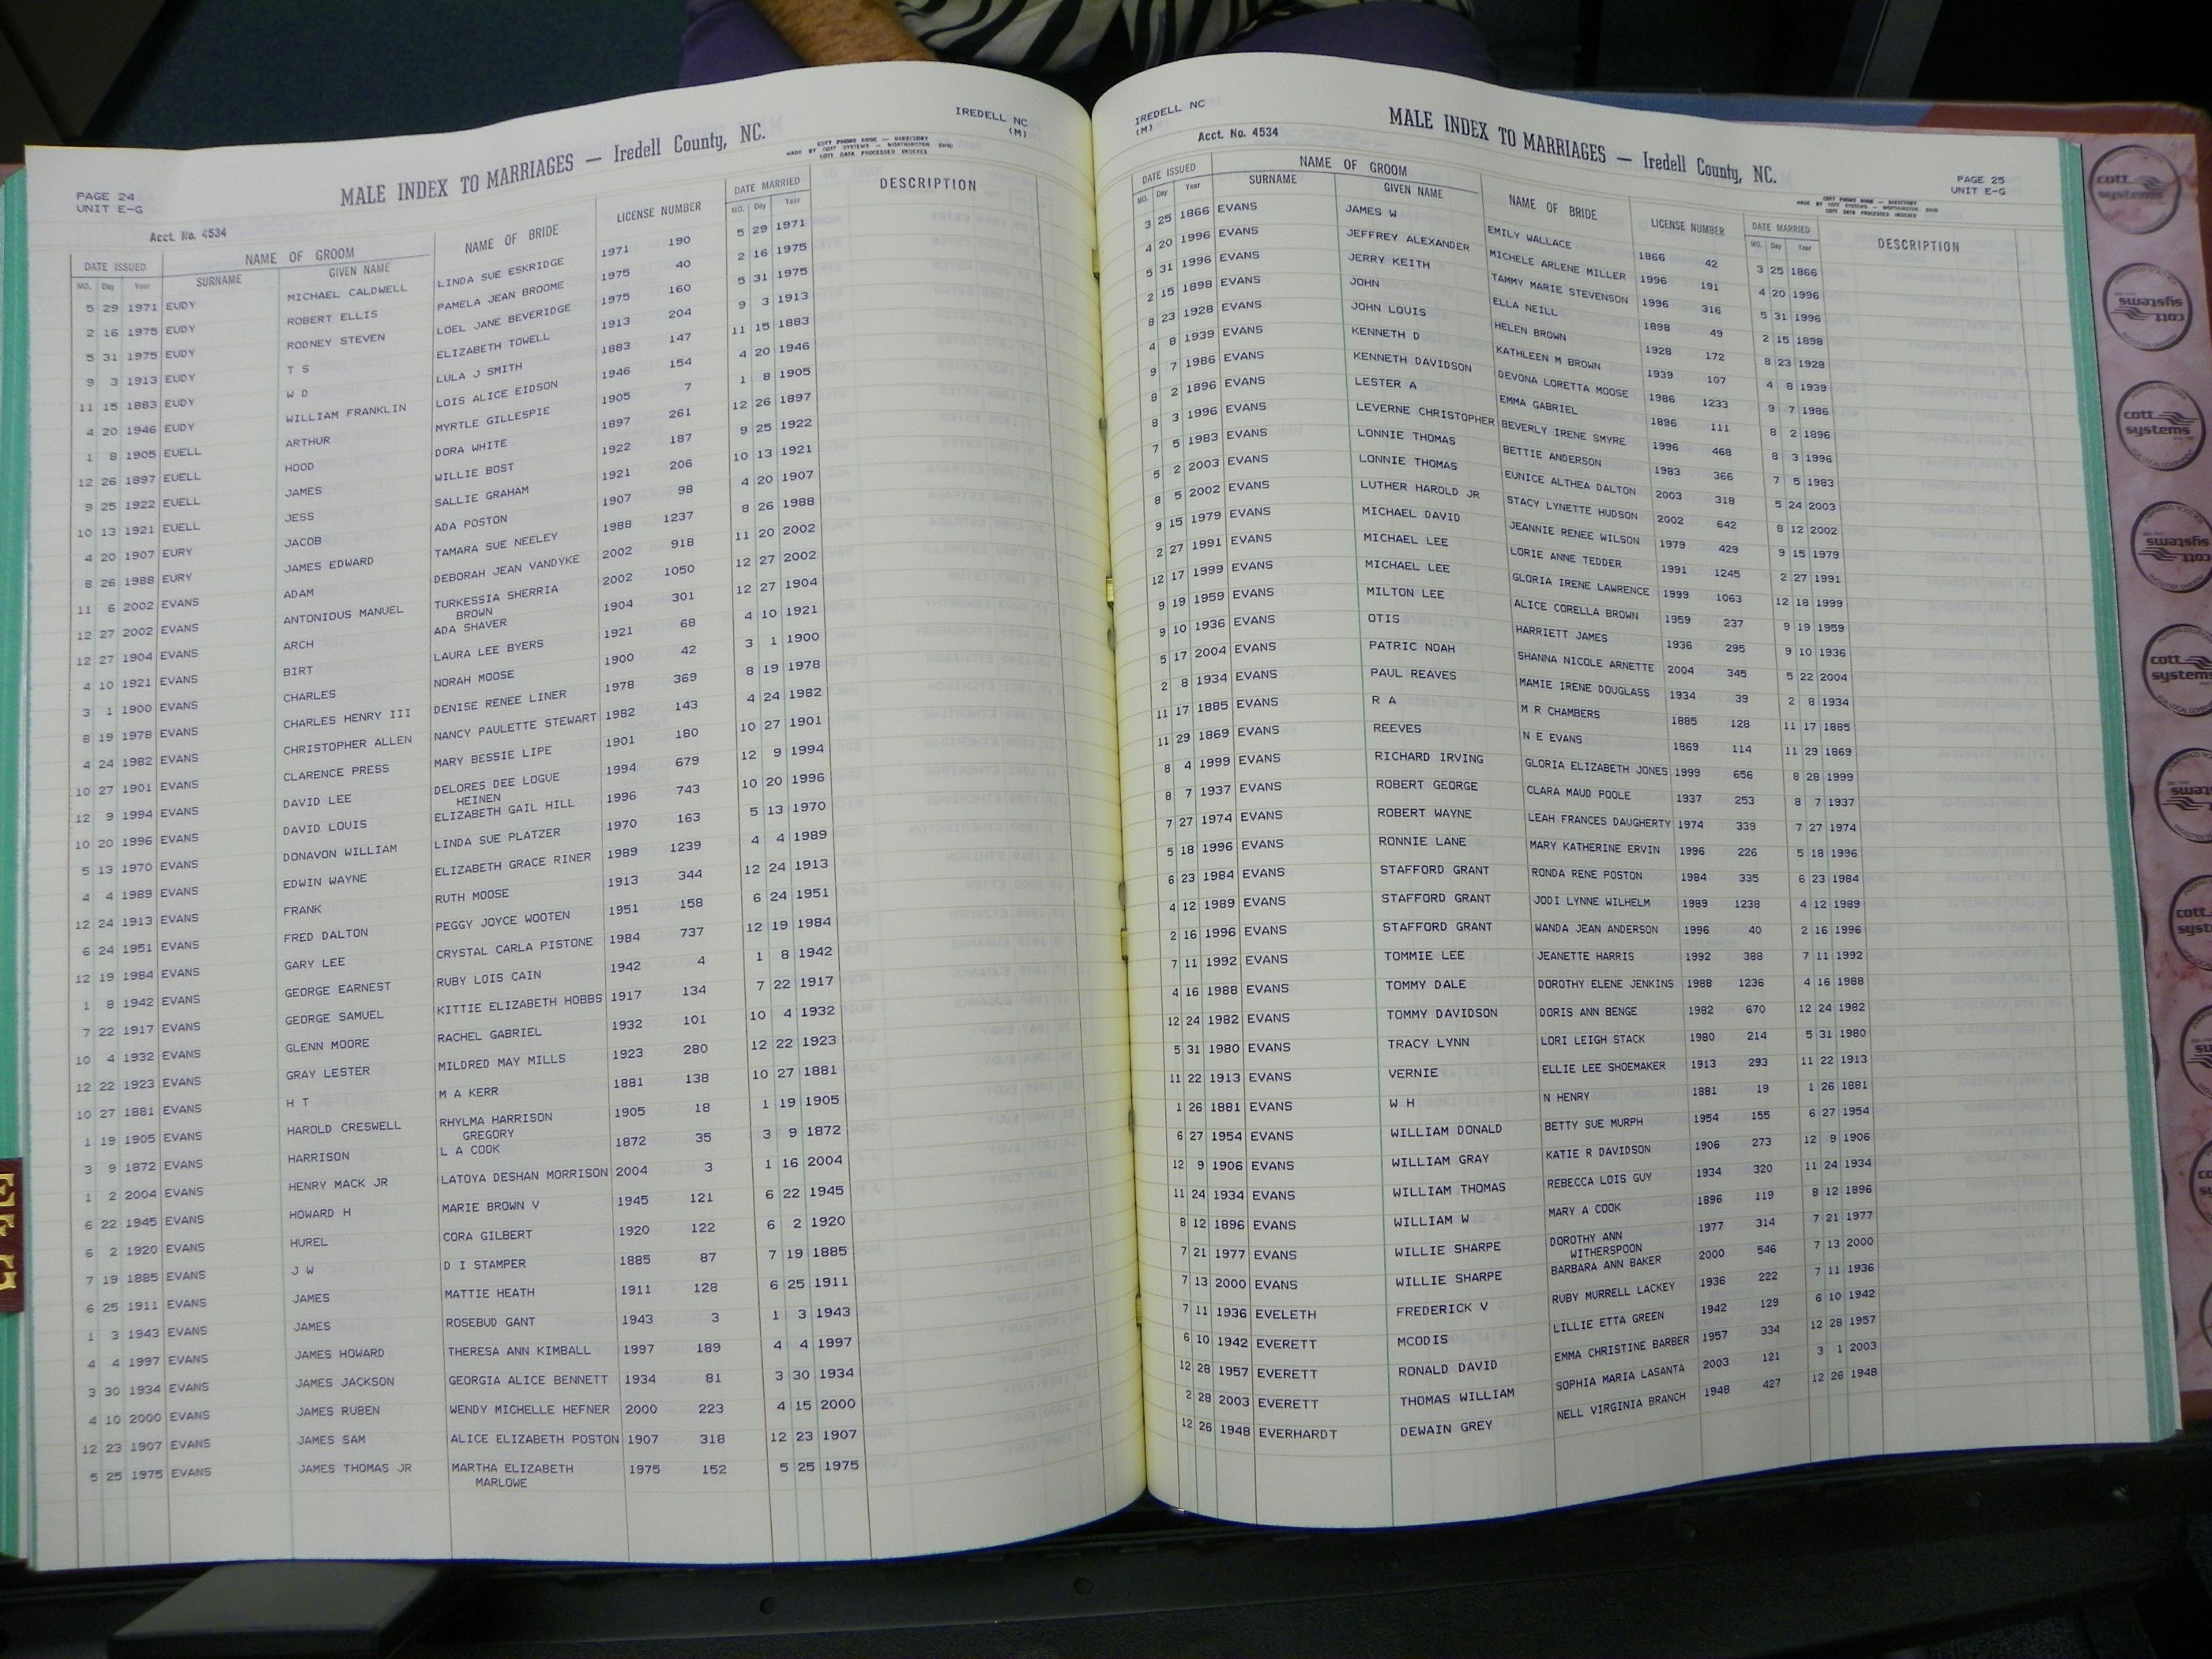 PAGE 24
UNIT E-G
MALE INDEX TO MARRIAGES — Iredell County, NC.
COTT PHONE BOOK — DIRECTORY
MADE BY COTT SYSTEMS — WORTHINGTON OHIO
COTT DATA PROCESSED INDEXES
IREDELL NC
(M)
Acct. No. 4534
DATE ISSUED NAME OF GROOM NAME OF BRIDE LICENSE NUMBER DATE MARRIED DESCRIPTION
MO. Day Year SURNAME GIVEN NAME MO. Day Year
5 29 1971 EUDY MICHAEL CALDWELL LINDA SUE ESKRIDGE 1971 190 5 29 1971
2 16 1975 EUDY ROBERT ELLIS PAMELA JEAN BROOME 1975 40 2 16 1975
5 31 1975 EUDY RODNEY STEVEN LOEL JANE BEVERIDGE 1975 160 5 31 1975
9 3 1913 EUDY T S ELIZABETH TOWELL 1913 204 9 3 1913
11 15 1883 EUDY W D LULA J SMITH 1883 147 11 15 1883
4 20 1946 EUDY WILLIAM FRANKLIN LOIS ALICE EIDSON 1946 154 4 20 1946
1 8 1905 EUELL ARTHUR MYRTLE GILLESPIE 1905 7 1 8 1905
12 26 1897 EUELL HOOD DORA WHITE 1897 261 12 26 1897
9 25 1922 EUELL JAMES WILLIE BOST 1922 187 9 25 1922
10 13 1921 EUELL JESS SALLIE GRAHAM 1921 206 10 13 1921
4 20 1907 EURY JACOB ADA POSTON 1907 98 4 20 1907
8 26 1988 EURY JAMES EDWARD TAMARA SUE NEELEY 1988 1237 8 26 1988
11 6 2002 EVANS ADAM DEBORAH JEAN VANDYKE 2002 918 11 20 2002
12 27 2002 EVANS ANTONIOUS MANUEL TURKESSIA SHERRIA 2002 1050 12 27 2002
BROWN
12 27 1904 EVANS ARCH ADA SHAVER 1904 301 12 27 1904
4 10 1921 EVANS BIRT LAURA LEE BYERS 1921 68 4 10 1921
3 1 1900 EVANS CHARLES NORAH MOOSE 1900 42 3 1 1900
8 19 1978 EVANS CHARLES HENRY III DENISE RENEE LINER 1978 369 8 19 1978
4 24 1982 EVANS CHRISTOPHER ALLEN NANCY PAULETTE STEWART 1982 143 4 24 1982
10 27 1901 EVANS CLARENCE PRESS MARY BESSIE LIPE 1901 180 10 27 1901
12 9 1994 EVANS DAVID LEE DELORES DEE LOGUE 1994 679 12 9 1994
HEINEN
10 20 1996 EVANS DAVID LOUIS ELIZABETH GAIL HILL 1996 743 10 20 1996
5 13 1970 EVANS DONAVON WILLIAM LINDA SUE PLATZER 1970 163 5 13 1970
4 4 1989 EVANS EDWIN WAYNE ELIZABETH GRACE RINER 1989 1239 4 4 1989
12 24 1913 EVANS FRANK RUTH MOOSE 1913 344 12 24 1913
6 24 1951 EVANS FRED DALTON PEGGY JOYCE WOOTEN 1951 158 6 24 1951
12 19 1984 EVANS GARY LEE CRYSTAL CARLA PISTONE 1984 737 12 19 1984
1 8 1942 EVANS GEORGE EARNEST RUBY LOIS CAIN 1942 4 1 8 1942
7 22 1917 EVANS GEORGE SAMUEL KITTIE ELIZABETH HOBBS 1917 134 7 22 1917
10 4 1932 EVANS GLENN MOORE RACHEL GABRIEL 1932 101 10 4 1932
12 22 1923 EVANS GRAY LESTER MILDRED MAY MILLS 1923 280 12 22 1923
10 27 1881 EVANS H T M A KERR 1881 138 10 27 1881
1 19 1905 EVANS HAROLD CRESWELL RHYLMA HARRISON 1905 18 1 19 1905
GREGORY
3 9 1872 EVANS HARRISON L A COOK 1872 35 3 9 1872
1 2 2004 EVANS HENRY MACK JR LATOYA DESHAN MORRISON 2004 3 1 16 2004
6 22 1945 EVANS HOWARD H MARIE BROWN V 1945 121 6 22 1945
6 2 1920 EVANS HUREL CORA GILBERT 1920 122 6 2 1920
7 19 1885 EVANS J W D I STAMPER 1885 87 7 19 1885
6 25 1911 EVANS JAMES MATTIE HEATH 1911 128 6 25 1911
1 3 1943 EVANS JAMES ROSEBUD GANT 1943 3 1 3 1943
4 4 1997 EVANS JAMES HOWARD THERESA ANN KIMBALL 1997 189 4 4 1997
3 30 1934 EVANS JAMES JACKSON GEORGIA ALICE BENNETT 1934 81 3 30 1934
4 10 2000 EVANS JAMES RUBEN WENDY MICHELLE HEFNER 2000 223 4 15 2000
12 23 1907 EVANS JAMES SAM ALICE ELIZABETH POSTON 1907 318 12 23 1907
5 25 1975 EVANS JAMES THOMAS JR MARTHA ELIZABETH 1975 152 5 25 1975
MARLOWE
E F G
IREDELL NC
(M)
Acct. No. 4534
MALE INDEX TO MARRIAGES — Iredell County, NC.
COTT PHONE BOOK — DIRECTORY
MADE BY COTT SYSTEMS — WORTHINGTON OHIO
COTT DATA PROCESSED INDEXES
PAGE 25
UNIT E-G
DATE ISSUED NAME OF GROOM NAME OF BRIDE LICENSE NUMBER DATE MARRIED DESCRIPTION
MO. Day Year SURNAME GIVEN NAME MO. Day Year
3 25 1866 EVANS JAMES W EMILY WALLACE 1866 42 3 25 1866
4 20 1996 EVANS JEFFREY ALEXANDER MICHELE ARLENE MILLER 1996 191 4 20 1996
5 31 1996 EVANS JERRY KEITH TAMMY MARIE STEVENSON 1996 316 5 31 1996
2 15 1898 EVANS JOHN ELLA NEILL 1898 49 2 15 1898
8 23 1928 EVANS JOHN LOUIS HELEN BROWN 1928 172 8 23 1928
4 8 1939 EVANS KENNETH D KATHLEEN M BROWN 1939 107 4 8 1939
9 7 1986 EVANS KENNETH DAVIDSON DEVONA LORETTA MOOSE 1986 1233 9 7 1986
8 2 1896 EVANS LESTER A EMMA GABRIEL 1896 111 8 2 1896
8 3 1996 EVANS LEVERNE CHRISTOPHER BEVERLY IRENE SMYRE 1996 468 8 3 1996
7 5 1983 EVANS LONNIE THOMAS BETTIE ANDERSON 1983 366 7 5 1983
5 2 2003 EVANS LONNIE THOMAS EUNICE ALTHEA DALTON 2003 318 5 24 2003
8 5 2002 EVANS LUTHER HAROLD JR STACY LYNETTE HUDSON 2002 642 8 12 2002
9 15 1979 EVANS MICHAEL DAVID JEANNIE RENEE WILSON 1979 429 9 15 1979
2 27 1991 EVANS MICHAEL LEE LORIE ANNE TEDDER 1991 1245 2 27 1991
12 17 1999 EVANS MICHAEL LEE GLORIA IRENE LAWRENCE 1999 1063 12 18 1999
9 19 1959 EVANS MILTON LEE ALICE CORELLA BROWN 1959 237 9 19 1959
9 10 1936 EVANS OTIS HARRIETT JAMES 1936 295 9 10 1936
5 17 2004 EVANS PATRIC NOAH SHANNA NICOLE ARNETTE 2004 345 5 22 2004
2 8 1934 EVANS PAUL REAVES MAMIE IRENE DOUGLASS 1934 39 2 8 1934
11 17 1885 EVANS R A M R CHAMBERS 1885 128 11 17 1885
11 29 1869 EVANS REEVES N E EVANS 1869 114 11 29 1869
8 4 1999 EVANS RICHARD IRVING GLORIA ELIZABETH JONES 1999 656 8 28 1999
8 7 1937 EVANS ROBERT GEORGE CLARA MAUD POOLE 1937 253 8 7 1937
7 27 1974 EVANS ROBERT WAYNE LEAH FRANCES DAUGHERTY 1974 339 7 27 1974
5 18 1996 EVANS RONNIE LANE MARY KATHERINE ERVIN 1996 226 5 18 1996
6 23 1984 EVANS STAFFORD GRANT RONDA RENE POSTON 1984 335 6 23 1984
4 12 1989 EVANS STAFFORD GRANT JODI LYNNE WILHELM 1989 1238 4 12 1989
2 16 1996 EVANS STAFFORD GRANT WANDA JEAN ANDERSON 1996 40 2 16 1996
7 11 1992 EVANS TOMMIE LEE JEANETTE HARRIS 1992 388 7 11 1992
4 16 1988 EVANS TOMMY DALE DOROTHY ELENE JENKINS 1988 1236 4 16 1988
12 24 1982 EVANS TOMMY DAVIDSON DORIS ANN BENGE 1982 670 12 24 1982
5 31 1980 EVANS TRACY LYNN LORI LEIGH STACK 1980 214 5 31 1980
11 22 1913 EVANS VERNIE ELLIE LEE SHOEMAKER 1913 293 11 22 1913
1 26 1881 EVANS W H N HENRY 1881 19 1 26 1881
6 27 1954 EVANS WILLIAM DONALD BETTY SUE MURPH 1954 155 6 27 1954
12 9 1906 EVANS WILLIAM GRAY KATIE R DAVIDSON 1906 273 12 9 1906
11 24 1934 EVANS WILLIAM THOMAS REBECCA LOIS GUY 1934 320 11 24 1934
8 12 1896 EVANS WILLIAM W MARY A COOK 1896 119 8 12 1896
7 21 1977 EVANS WILLIE SHARPE DOROTHY ANN 1977 314 7 21 1977
WITHERSPOON
7 13 2000 EVANS WILLIE SHARPE BARBARA ANN BAKER 2000 546 7 13 2000
7 11 1936 EVELETH FREDERICK V RUBY MURRELL LACKEY 1936 222 7 11 1936
6 10 1942 EVERETT MCODIS LILLIE ETTA GREEN 1942 129 6 10 1942
12 28 1957 EVERETT RONALD DAVID EMMA CHRISTINE BARBER 1957 334 12 28 1957
2 28 2003 EVERETT THOMAS WILLIAM SOPHIA MARIA LASANTA 2003 121 3 1 2003
12 26 1948 EVERHARDT DEWAIN GREY NELL VIRGINIA BRANCH 1948 427 12 26 1948
cott systems
cott systems
cott systems
cott systems
cott systems